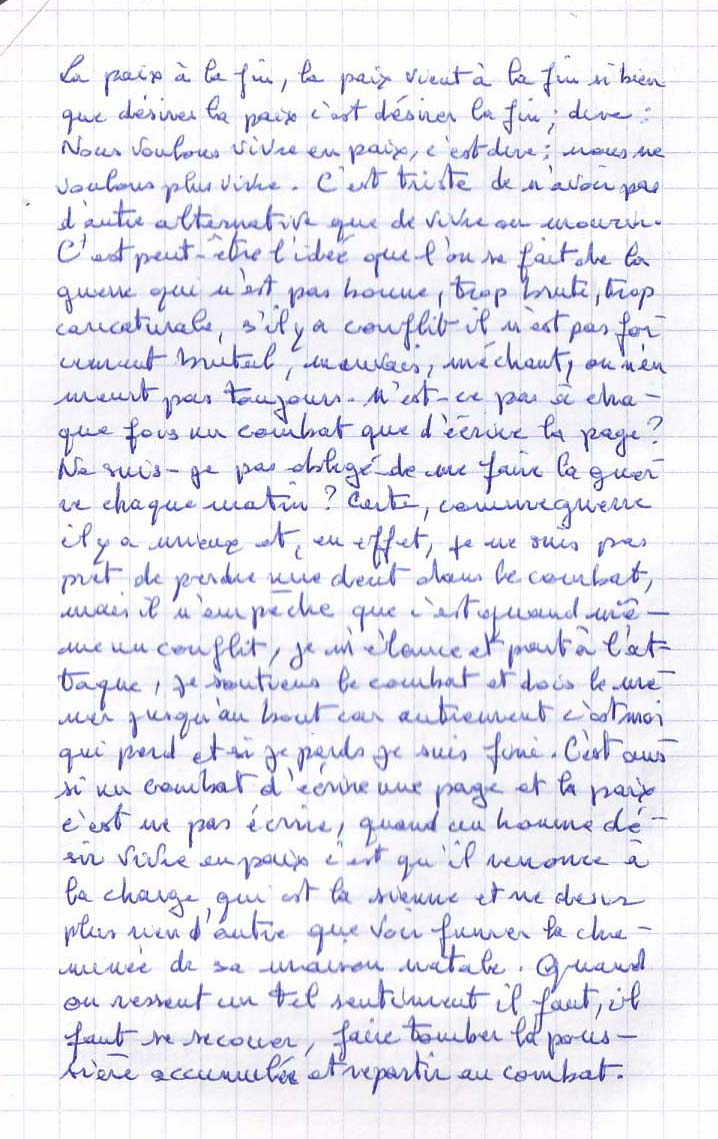 La paix à la fin, la paix vient à la fin si bien
que désirer la paix c'est désirer la fin; dire :
Nous voulons vivre en paix, c'est dire : nous ne
voulons plus vivre. C'est triste de n'avoir pas
d'autre alternative que de vivre ou mourir.
C'est peut-être l'idée que l'on se fait de la
guerre qui n'est pas bonne, trop brute, trop
caricaturale, s'il y a conflit il n'est pas for
cément brutal, mauvais, méchant, on n'en
meurt pas toujours. N'est-ce pas à cha-
que fois un combat que d'écrire la page?
Ne suis-je pas obligé de me faire la guer
re chaque matin? Certe, comme guerre
il y a mieux et, en effet, je ne suis pas
prêt de perdre une dent dans le combat,
mais il n'empêche que c'est quand mê-
me un conflit, je m'élance et part à l'at-
taque, je soutiens le combat et dois le me-
ner jusqu'au bout car autrement c'est moi
qui perd et si je perds je suis fini. C'est aus-
si un combat d'écrire une page et la paix
c'est ne pas écrire, quand un homme dé-
sir vivre en paix c'est qu'il renonce à
la charge qui est la sienne et ne desir
plus rien d'autre que voir fumer la che-
minée de sa maison natale. Quand
on ressent un tel sentiment il faut, il
faut se secouer, faire tomber la pous-
sière accumulée et repartir au combat.